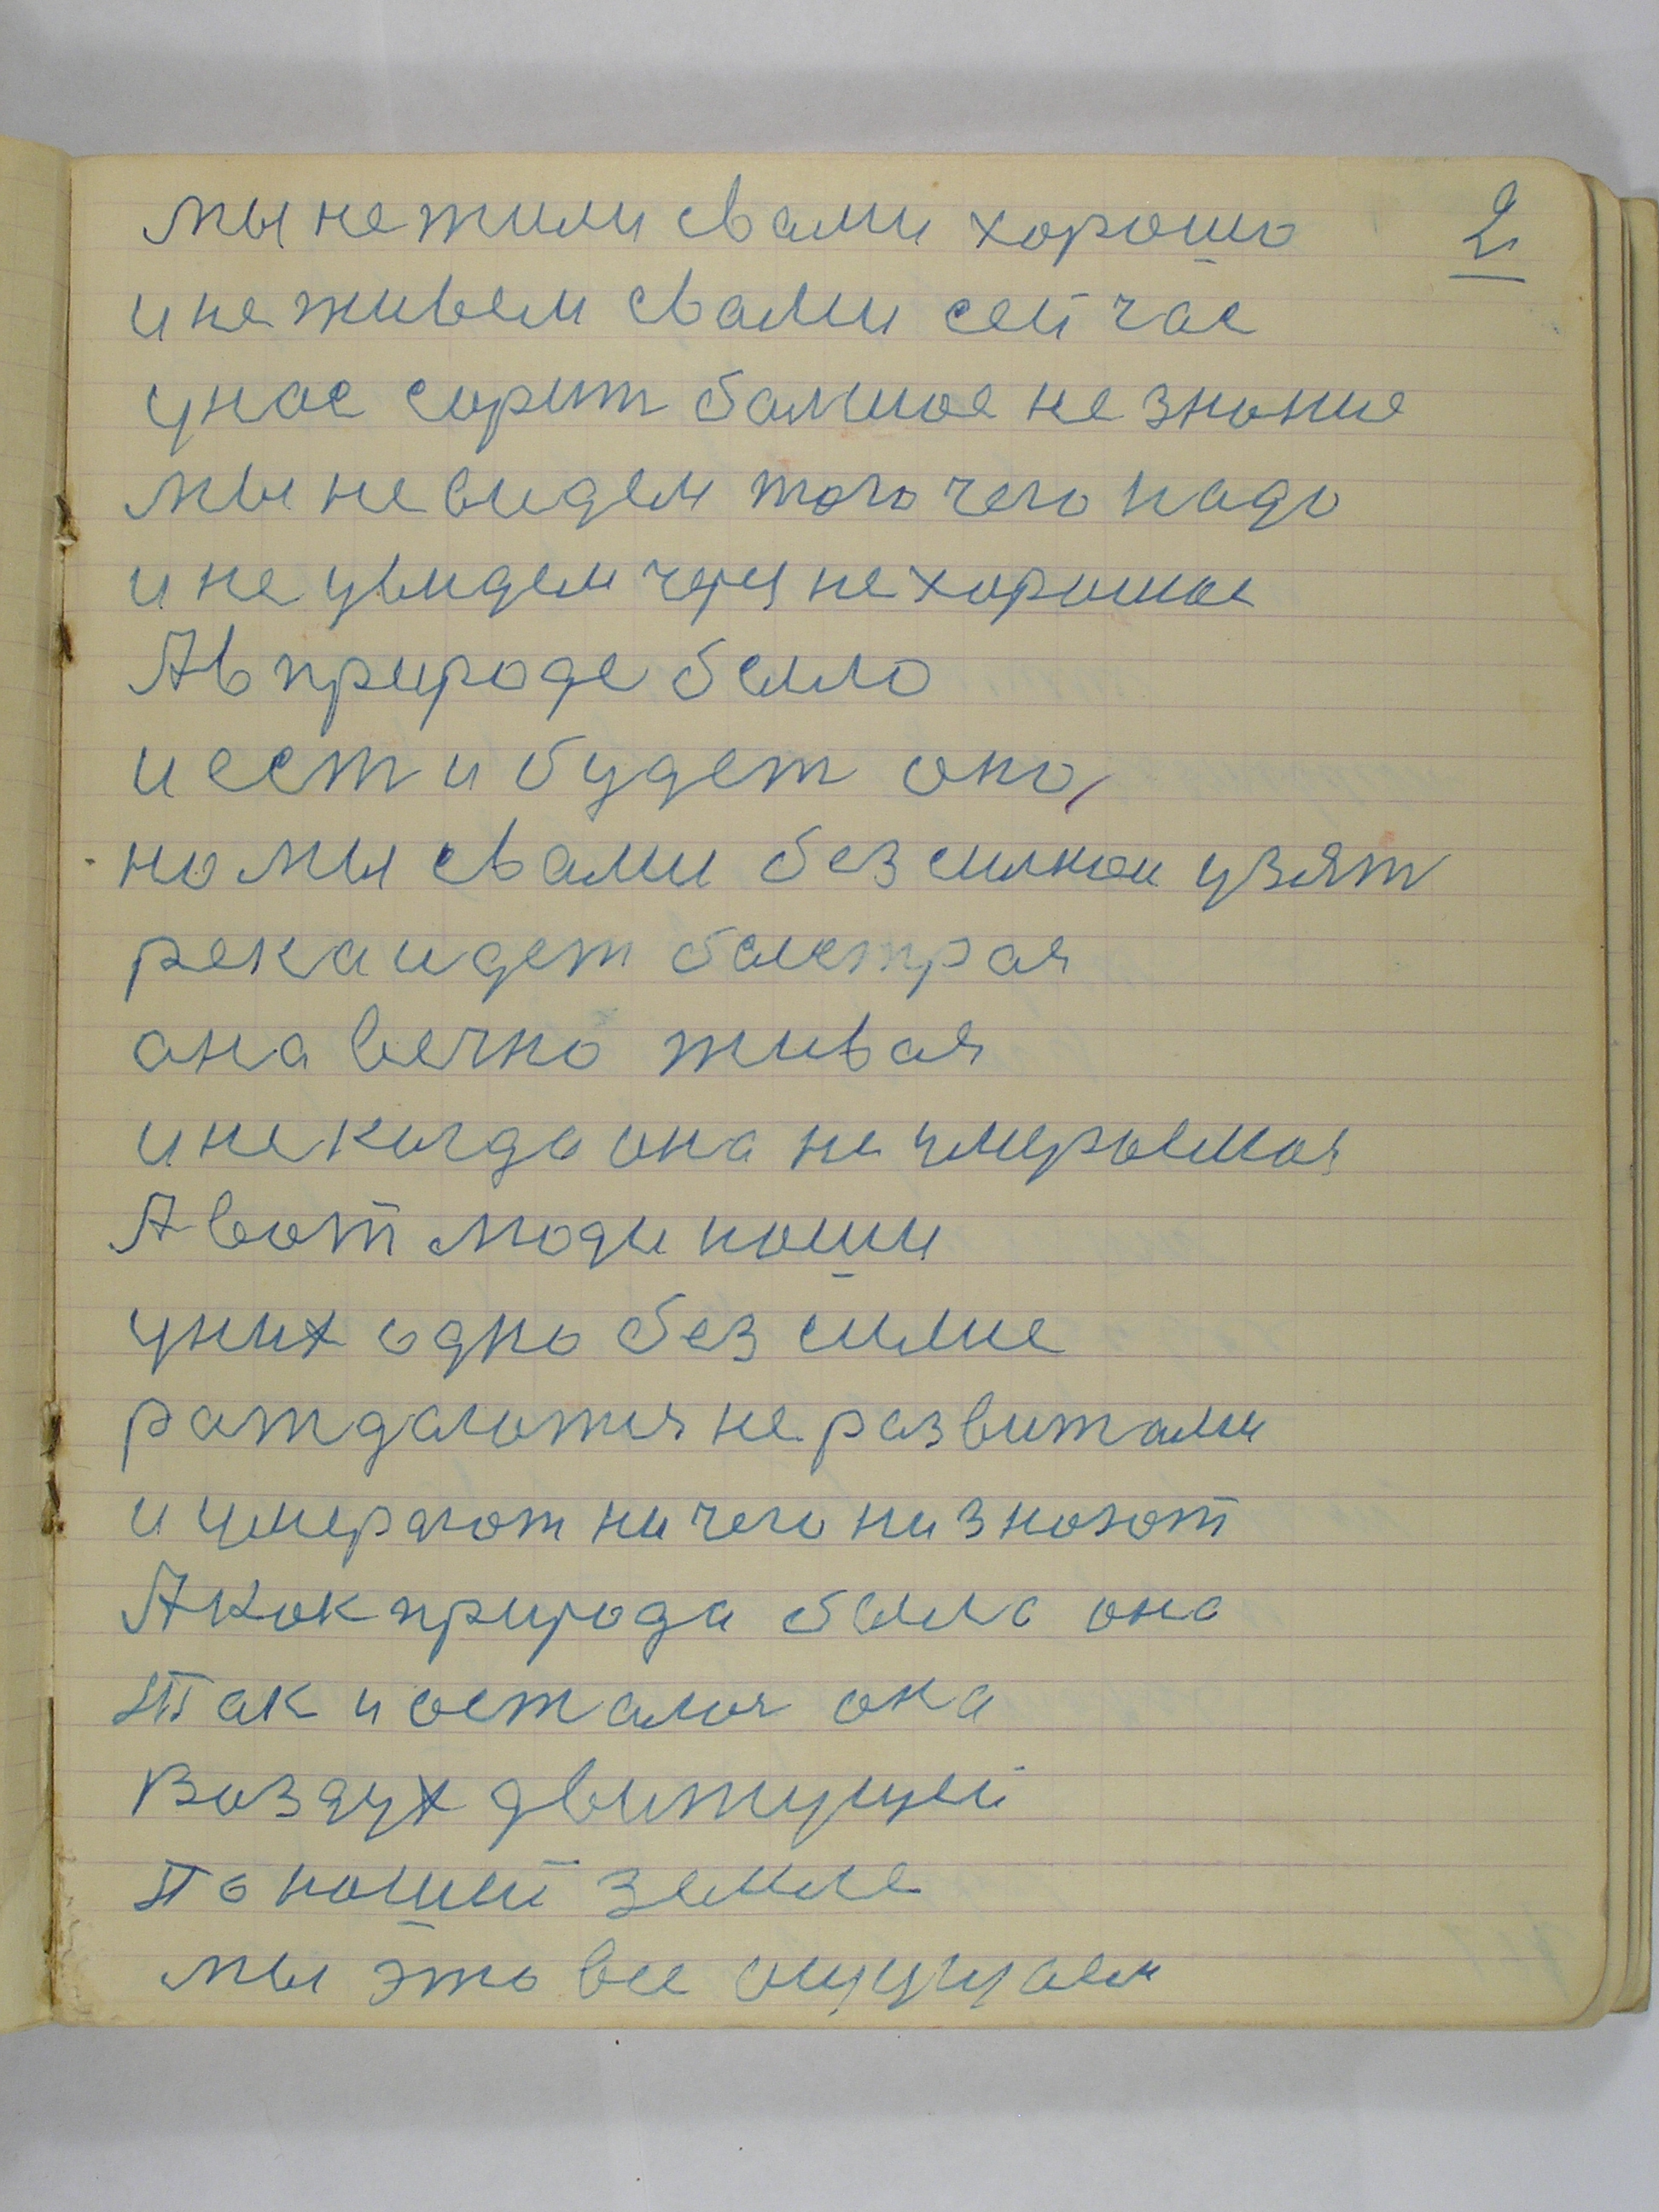 мы не жили свами хорошо 2
и не живем свами сейчас
унас сорит балшое не знание
мы не видем того чего надо
и не увидем через не хорошое
А в природе было
и ест и будет оно,
но мы свами без силнои узят
река идет быстрая
она вечно живая
и не когда она не умераемая
А вот люди наши
уних одно без силие
раждаются не развитами
и умерают ни чего ни знают
А как природа была она
Так и осталоя она
Воздух движущей
По нашей земле
мы это все ощущаем